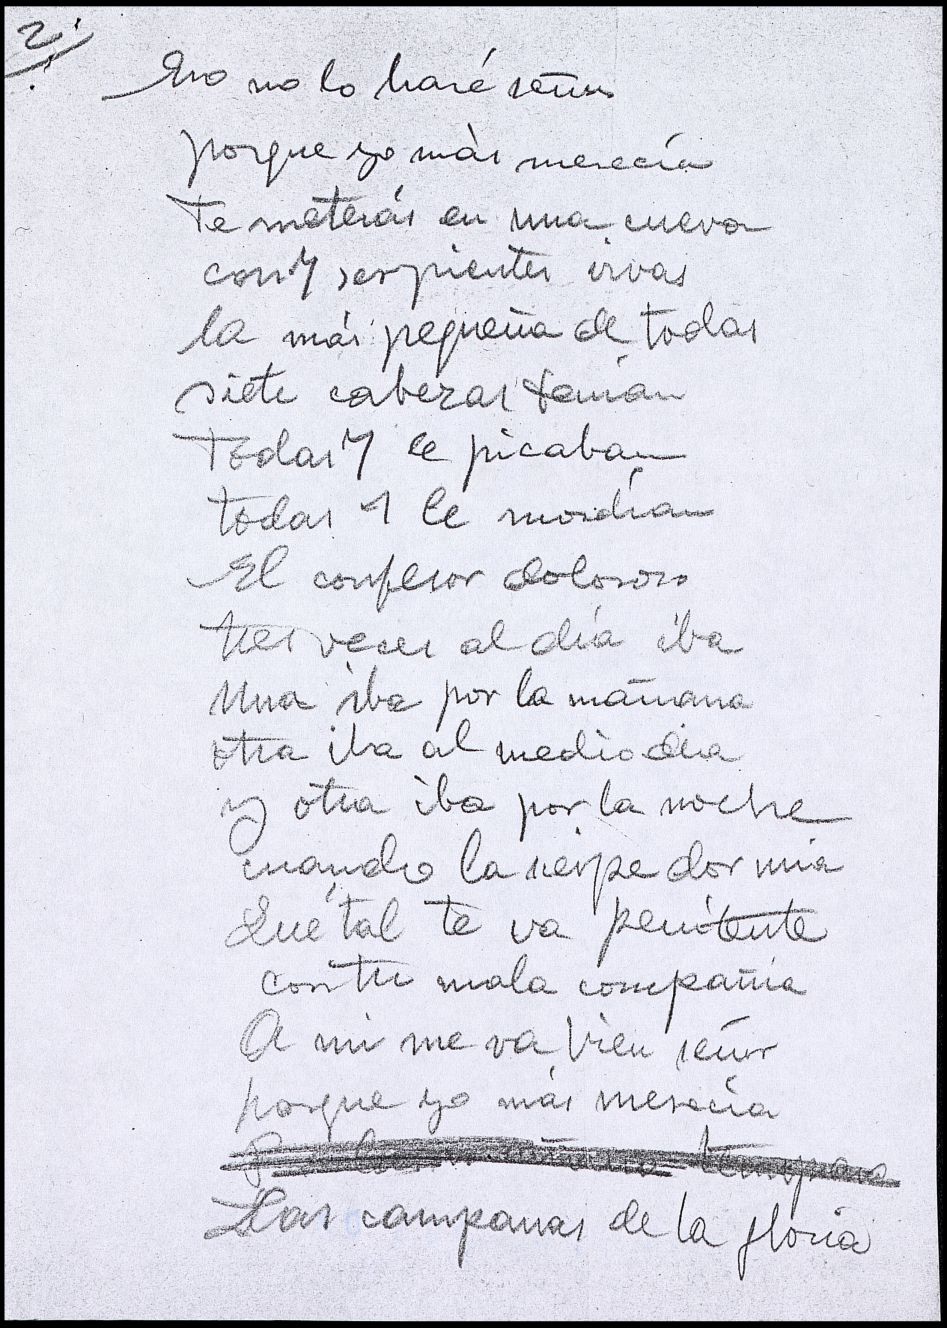 2
Eso no lo haré señor
porque yo más merecía
te meterás en una cueva
con 7 serpientes vivas
la más pequeña de todas
siete cabezas tenían
Todas 7 le picaban
todas 7 le mordían
El confesor doloroso
tres veces al día iba
Una iba por la mañana
otra iba al mediodía
y otra iba por la noche
cuando la serpe dormía
Qué tal te va penitente
con tu mala compañía
A mi me va bien señor
porque yo más merecía
mañana temprano
Las campanas de la gloria